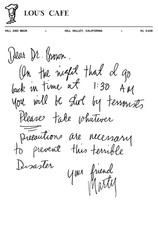 LOU'S CAFE
HILL AND MAIN HILL VALLEY, CALIFORNIA
Dear Dr. Brown,
On the night that I go
back in time at 1:30 AM
you will be shot by terrorists
Please take whatever
precautions are necessary
to prevent this terrible
Disaster
Your friend
Marty